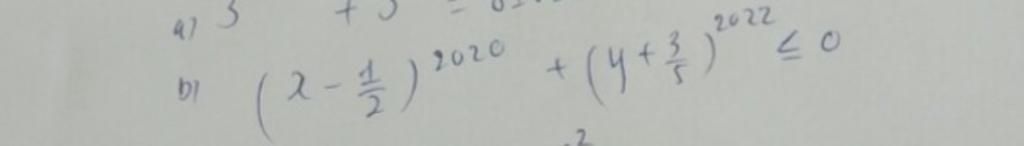 a) 3 + 3 =
b) (x - 1/2)^2020 + (y + 3/5)^2022 ≤ 0
2